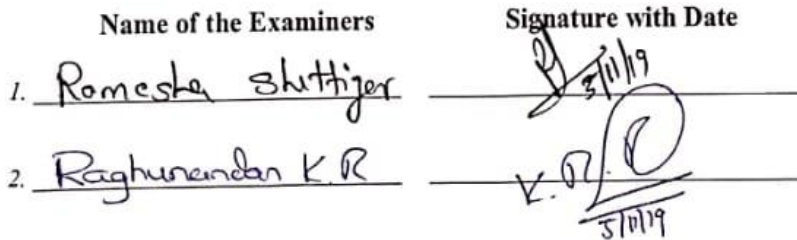 Name of the Examiners Signature with Date
1. Ramesha Shettigar 5/11/19
2. Raghunandan K.R K.R.
5/11/19